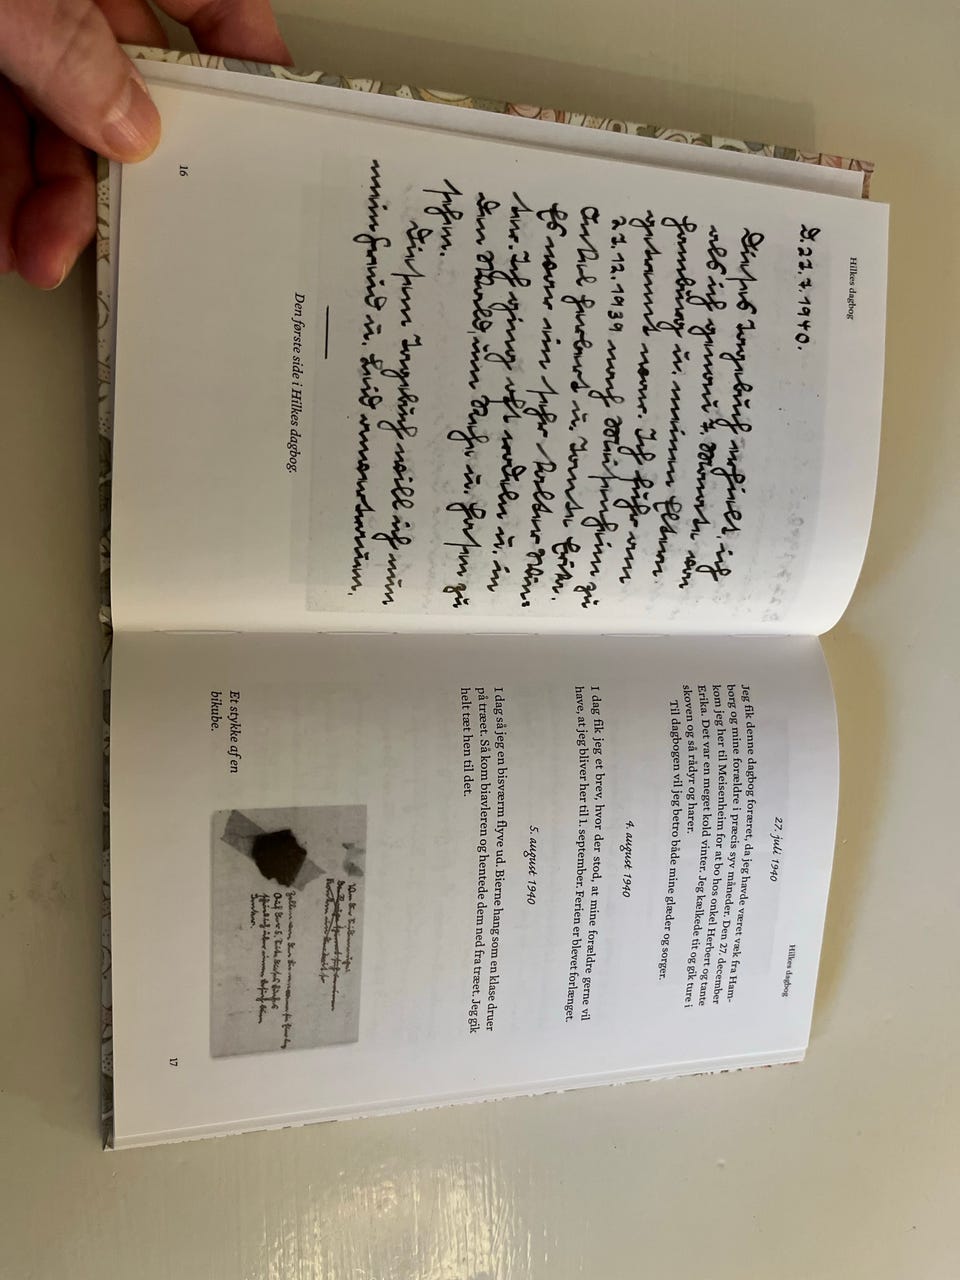 Hilkes dagbog
D. 27. 7. 1940.
Dieses Tagebuch erhielt ich,
als ich genau 7 Monate von
Hamburg u. meinen Eltern
getrennt war. Ich fuhr am
27. 12. 1939 nach Meisenheim zu
Onkel Herbert u. Tante Erika.
Es war ein sehr kalter Win-
ter. Ich ging oft rodeln u. in
den Wald, um Rehe u. Hasen zu
sehen.
Diesem Tagebuch will ich nun
mein Freud u. Leid anvertrauen.
Den første side i Hilkes dagbog.
16
Hilkes dagbog
27. juli 1940
Jeg fik denne dagbog foræret, da jeg havde været væk fra Ham-
borg og mine forældre i præcis syv måneder. Den 27. december
kom jeg her til Meisenheim for at bo hos onkel Herbert og tante
Erika. Det var en meget kold vinter. Jeg kælkede tit og gik ture i
skoven og så rådyr og harer.
Til dagbogen vil jeg betro både mine glæder og sorger.
4. august 1940
I dag fik jeg et brev, hvor der stod, at mine forældre gerne vil
have, at jeg bliver her til 1. september. Ferien er blevet forlænget.
5. august 1940
I dag så jeg en bisværm flyve ud. Bierne hang som en klase druer
på træet. Så kom biavleren og hentede dem ned fra træet. Jeg gik
helt tæt hen til det.
Et stykke af en
bikube.
17